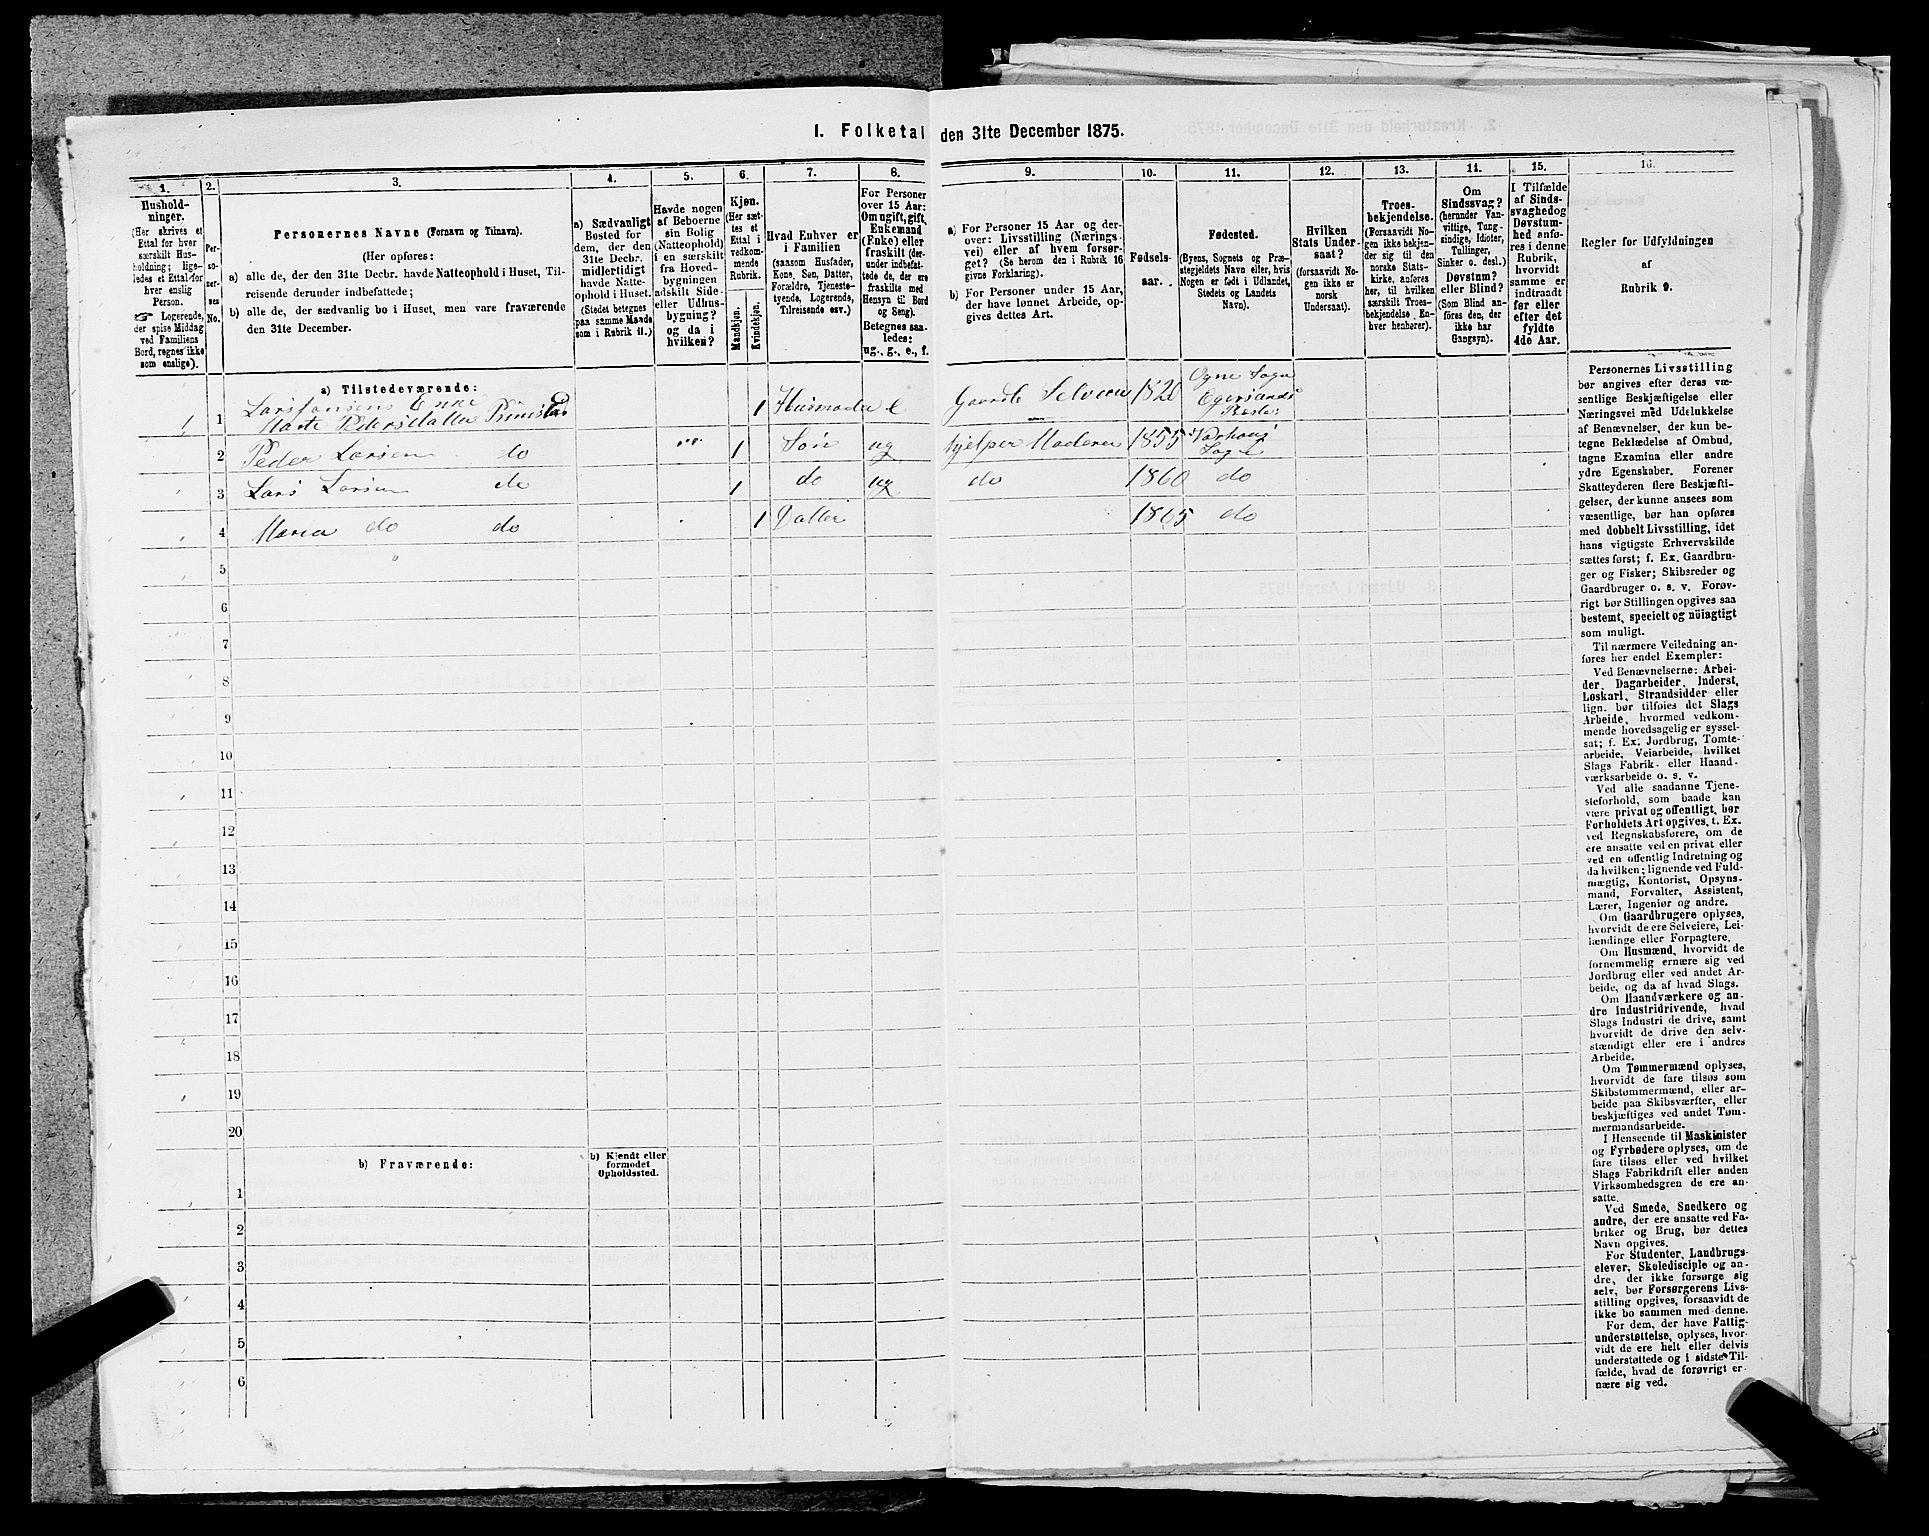 I. Folketal den 31te December 1875.
1.
Hushold-
ninger.
(Her skrives et
Ettal for hver
særskilt Hus-
holdning; lige-
ledes et Ettal for
hver enslig
Person.
☞ Logerende,
der spise Middag
ved Familiens
Bord, regnes ikke
som enslige).
2.
Per-
so-
ner-
nes
No.
3.
Personernes Navne (Fornavn og Tilnavn).
(Her opføres:
a) alle de, der den 31te Decbr. havde Natteophold i Huset, Til-
reisende derunder indbefattede;
b) alle de, der sædvanlig bo i Huset, men vare fraværende
den 31te December.
4.
a) Sædvanligt
Bosted for
dem, der den
31te Decbr.
midlertidigt
havde Natte-
ophold i Huset.
(Stedet betegnes
paa samme Maade
som i Rubrik 11.)
5.
Havde nogen
af Beboerne
sin Bolig
(Natteophold)
i en særskilt
fra Hoved-
bygningen
adskilt Side-
eller Udhus-
bygning?
og da i
hvilken?
6.
Kjøn.
(Her sæt-
tes et
Ettal i
vedkom-
mende
Rubrik.
Mandkjøn.
Kvindekjøn.
7.
Hvad Enhver er
i Familien
(saasom Husfader,
Kone, Søn, Datter,
Forældre, Tjeneste-
tyende, Logerende,
Tilreisende osv.)
8.
For Personer
over 15 Aar:
Om ugift, gift,
Enkemand
(Enke) eller
fraskilt (der-
under indbefat-
tede de, der ere
fraskilte med
Hensyn til Bord
og Seng).
Betegnes saa-
ledes:
ug., g., e., f.
9.
a) For Personer 15 Aar og der-
over: Livsstilling (Nærings-
vei) eller af hvem forsør-
get? (Se herom den i Rubrik 16
givne Forklaring).
b) For Personer under 15 Aar,
der have lønnet Arbeide, op-
gives dettes Art.
10.
Fødsels-
aar.
11.
Fødested.
(Byens, Sognets og Præ-
stegjeldets Navn eller, hvis
Nogen er født i Udlandet,
Stedets og Landets
Navn).
12.
Hvilken
Stats Under-
saat?
(forsaavidt No-
gen ikke er
norsk
Undersaat).
13.
Troes-
bekjendelse.
(Forsaavidt No-
gen ikke bekjen-
der sig til den
norske Stats-
kirke, anføres
her, til hvilken
særskilt Troes-
bekjendelse En-
hver henhører).
14.
Om
Sindssvag?
(herunder Van-
vittige, Tung-
sindige, Idioter,
Tullinger,
Sinker o. desl.)
Døvstum?
eller Blind?
(Som Blind an-
føres den, der
ikke har
Gangsyn).
15.
I Tilfælde
af Sinds-
svaghed og
Døvstum-
hed anfø-
res i denne
Rubrik,
hvorvidt
samme er
indtraadt
før eller
efter det
fyldte
4de Aar.
16.
Regler for Udfyldningen
af
Rubrik 9.
a) Tilstedeværende:
1 1 Lars Jansens Enke
Marte Pedersdatter 1 Husmoder e Gaardb Selveier 1820 Ogne Sogn
Egersunds
2 Peder Larsen do " 1 Søn ug hjelper Moderen 1855 Varhoug
Sogn
3 Lars Larsen do 1 do ug do 1860 do
4 Maria do do 1 Datter 1865 do
5
6
7
8
9
10
11
12
13
14
15
16
17
18
19
20
b) Fraværende:
b) Kjendt eller
formodet
Opholdssted.
1
2
3
4
5
6
Personernes Livsstilling
bør angives efter deres væ-
sentlige Beskjæftigelse eller
Næringsvei med Udelukkelse
af Benævnelser, der kun be-
tegne Beklædelse af Ombud,
tagne Examina eller andre
ydre Egenskaber. Forener
Skatteyderen flere Beskjæfti-
gelser, der kunne ansees som
væsentlige, bør han opføres
med dobbelt Livsstilling, idet
hans vigtigste Erhvervskilde
sættes først; f. Ex. Gaardbru-
ger og Fisker; Skibsreder og
Gaardbruger o. s. v. Forøv-
rigt bør Stillingen opgives saa
bestemt, specielt og nöiagtigt
som muligt.
Til nærmere Veiledning an-
føres her endel Exempler:
Ved Benævnelserne: Arbei-
der, Dagarbeider, Inderst,
Løskarl, Strandsidder eller
lign. bør tilføies det Slags
Arbeide, hvormed vedkom-
mende hovedsagelig er syssel-
sat; f. Ex. Jordbrug, Tomte-
arbeide, Veiarbeide, hvilket
Slags Fabrik- eller Haand-
værksarbeide o. s. v.
Ved alle saadanne Tjene-
steforhold, som baade kan
være privat og offentligt, bør
Forholdets Art opgives, t. Ex.
ved Regnskabsførere, om de
ere ansatte ved en privat eller
ved en offentlig Indretning og
da hvilken; lignende ved Fuld-
mægtig, Kontorist, Opsyns-
mand, Forvalter, Assistent,
Lærer, Ingeniør og andre.
Om Gaardbrugere oplyses,
hvorvidt de ere Selveiere, Lei-
lændinge eller Forpagtere.
Om Husmænd, hvorvidt de
fornemmelig ernære sig ved
Jordbrug eller ved andet Ar-
beide, og da af hvad Slags.
Om Haandværkere og an-
dre Industridrivende, hvad
Slags Industri de drive, samt
hvorvidt de drive den selv-
stændigt eller ere i andres
Arbeide.
Om Tømmermænd oplyses,
hvorvidt de fare tilsøs som
Skibstømmermænd, eller ar-
beide paa Skibsværfter, eller
beskjæftiges ved andet Tøm-
mermandsarbeide.
I Henseende til Maskinister
og Fyrbødere oplyses, om de
fare tilsøs eller ved hvilket
Slags Fabrikdrift eller anden
Virksomhedsgren de ere an-
satte.
Ved Smede, Snedkere og
andre, der ere ansatte ved Fa-
briker og Brug, bør dettes
Navn opgives.
For Studenter, Landbrugs-
elever, Skoledisciple og an-
dre, der ikke forsørge sig
selv, bør Forsørgerens Livs-
stilling opgives, forsaavidt de
ikke bo sammen med denne.
For dem, der have Fattig-
understøttelse, oplyses, hvor-
vidt de ere helt eller delvis
understøttede og i sidste Til-
fælde, hvad de forøvrigt er-
nære sig ved.